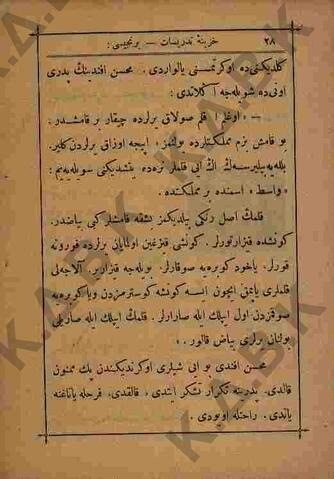 ٢٨ خزينۀ تدريسات — برنجيسى :
كلديكنى ده اوكرتمسنى يالواردى . محسن افندينك پدرى
اونى ده شويله جه آكلاتدى :
— « اوغلم ! قلم صولاق يرلرده چيقار بر قامشدر .
بو قامش بزم مملكتلرده بولنمز ، ايجه اوزاق يرلردن كلير .
بيله بيليرسه ك اك ايى قلملر نره ده يتشديكنى سويله يه يم :
« واسط » اسمنده بر مملكتده .
قلمك اصل رنكى بيلديكمز بشقه قامشلر كبى بياضدر .
كونشده قيزارتورلر . كونشى قيزغين اولمايان يرلرده فورونه
قورلر ، ياخود كوبره يه صوقارلر . بويله جه قيزارير . آلاجه لى
قلملرى ياپمق ايچون ايسه كونشه كوسترمزدن ويا كوبره يه
صوقمزدن اول ايپلك ايله صارارلر . قلمك ايپلك ايله صاريلى
بولنان يرلرى بياض قالور . »
محسن افندى بو ايى شيلرى اوكرنديكندن پك ممنون
قالدى . پدرينه تكرار تشكر ايتدى ، قالقدى ، فرحله ياتاغنه
ياتدى . راحتله اويودى .
K.A.B.K
K.A.B.K
K.A.B.K